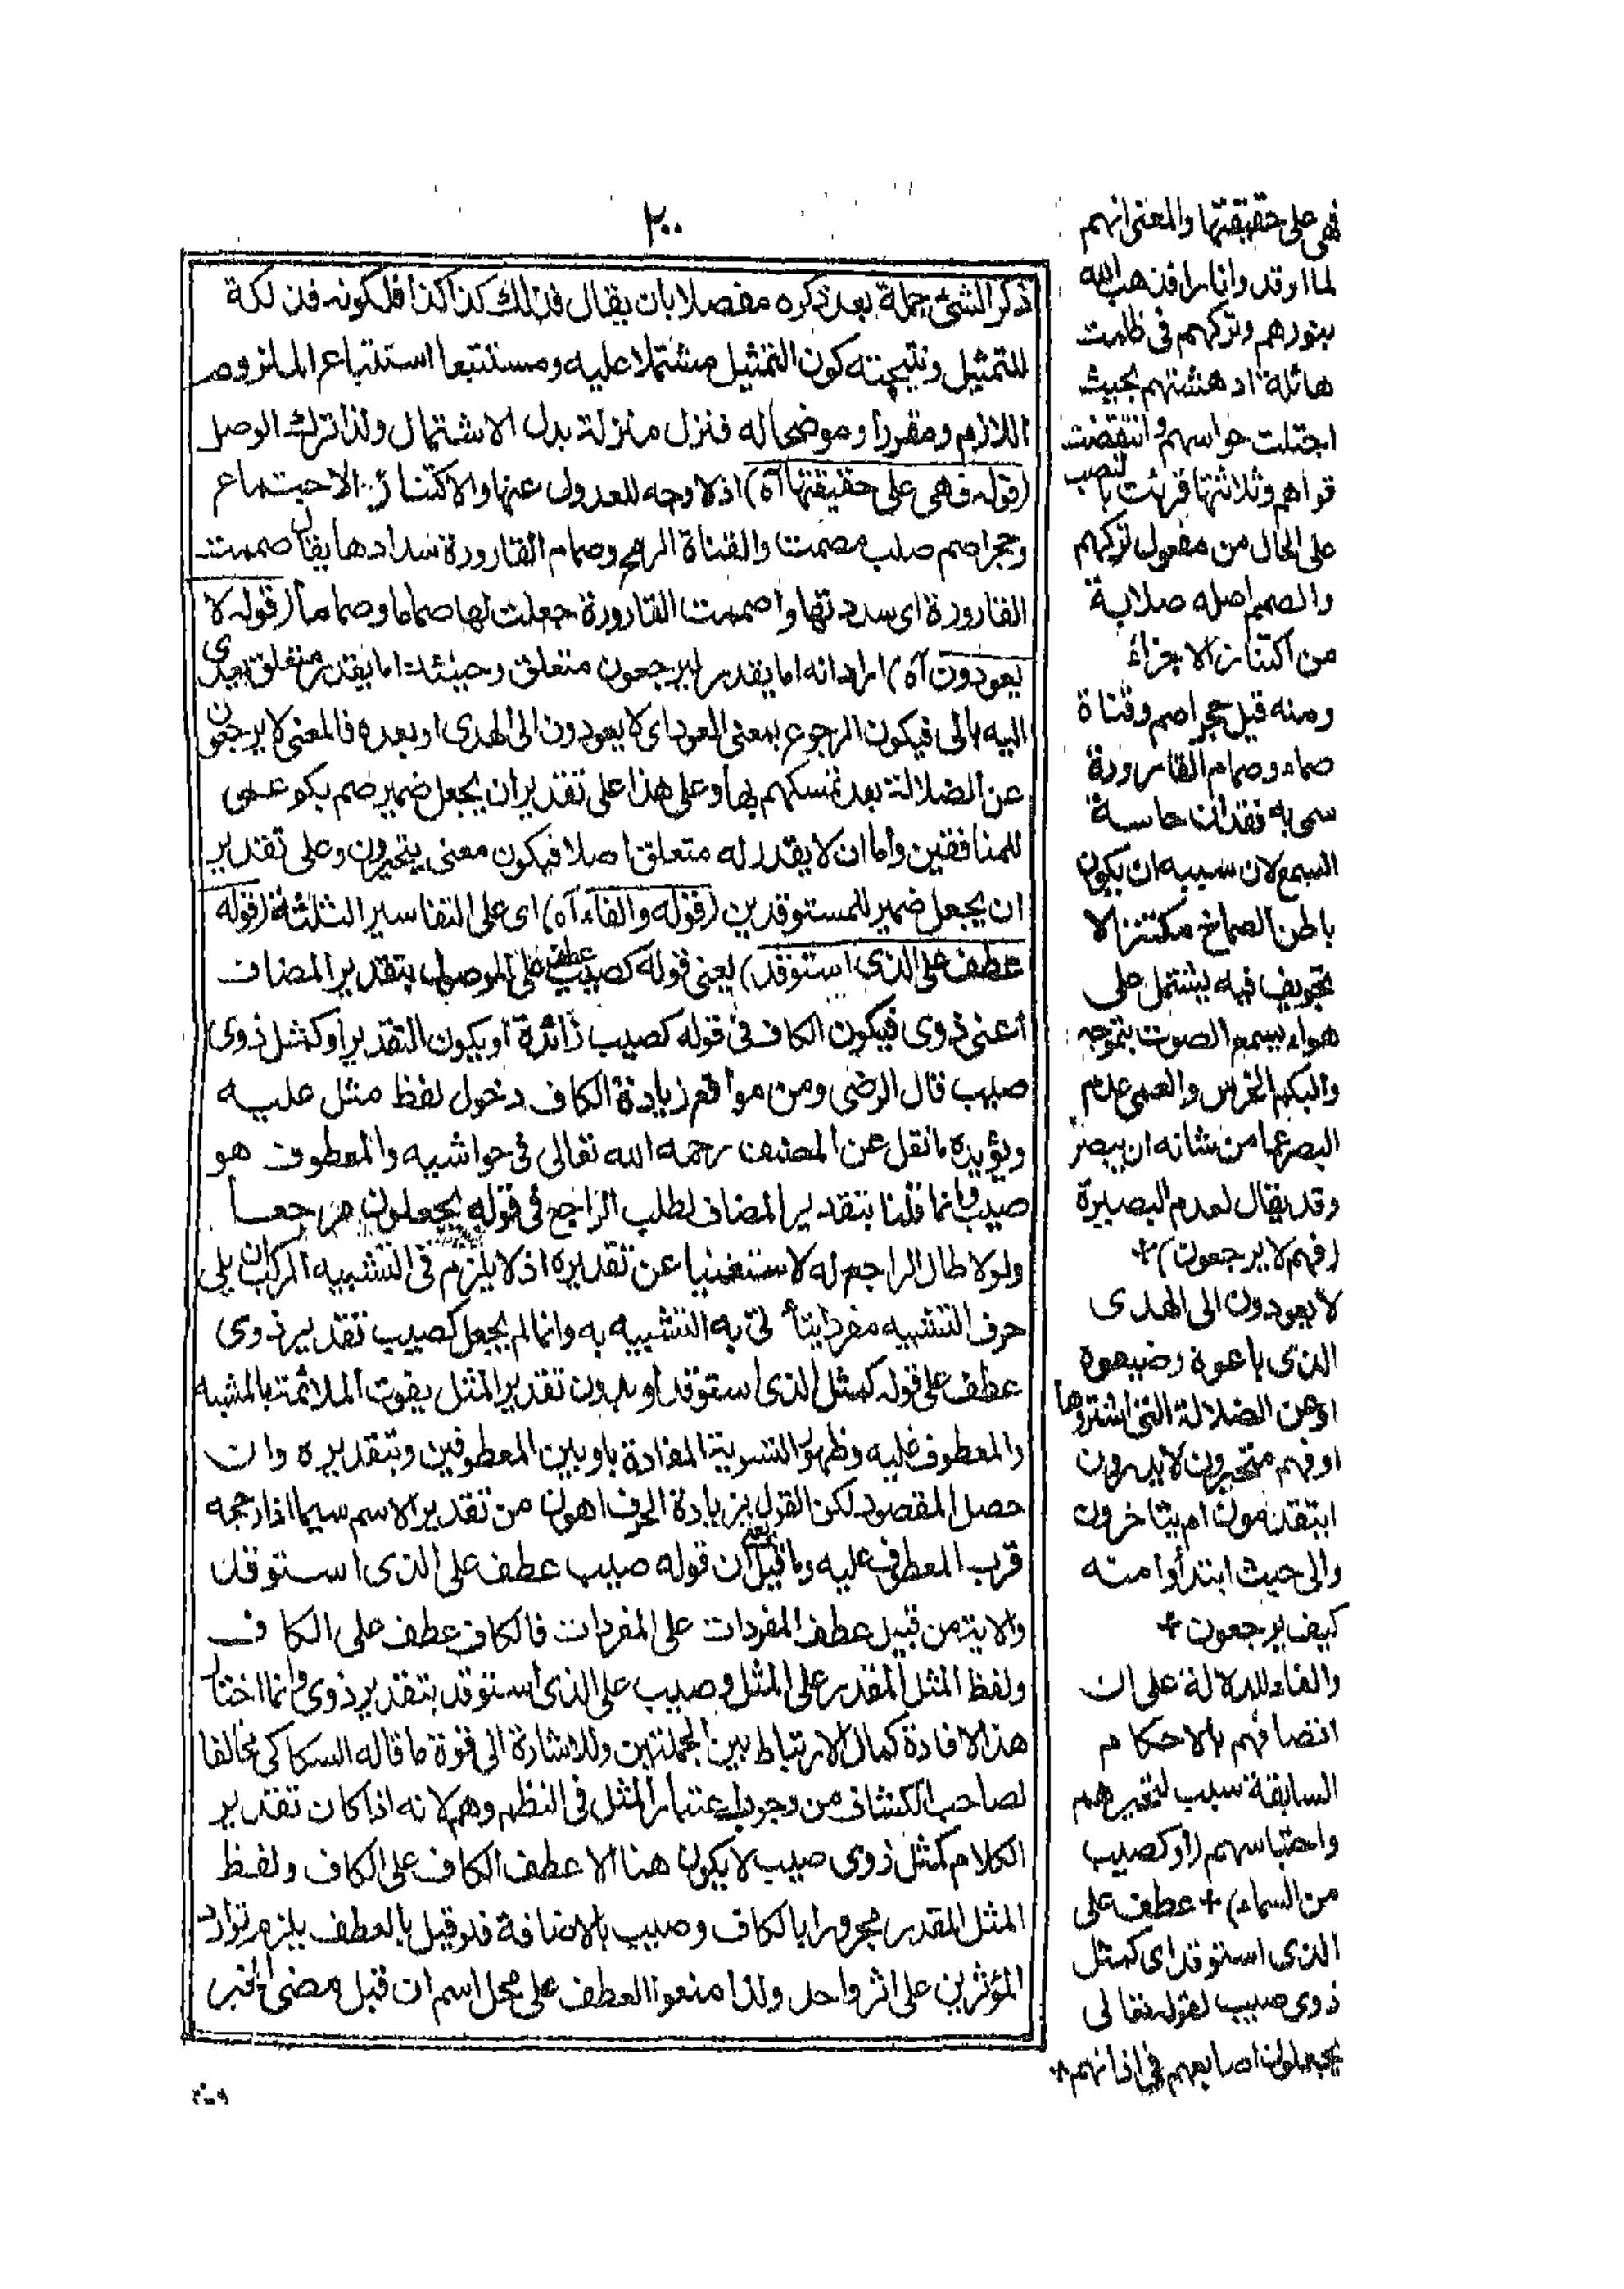 ٢٠٠
ذكر الشئ جملة بعد ذكره مفصلا بان يقال فذلك كذا كذا فلكونه فذلكة
للتمثيل ونتيجته كون التمثيل مشتملا عليه ومستتبعا استتباع الملزوم
اللازم ومقررا وموضحا له فنزل منزلة بدل الاشتمال ولذا ترك الوصل
(قوله فهى على حقيقتها آه) اذ لا وجه للعدول عنها والاكتناز الاجتماع
وحجر اصم صلب مصمت والقناة الرمح وصمام القارورة سدادها يقال صممت
القارورة اى سددتها واصممت القارورة جعلت لها صماما وصماما (قوله لا
يعودون آه) اراد انه اما يقدر ليرجعون متعلق وحينئذ اما يقدر متعلق يعدى
اليه بالى فيكون الرجوع بمعنى العود اى لا يعودون الى الهدى او بعده فالمعنى لا يرجعون
عن الضلالة بعد تمسكهم بها وعلى هذا على تقدير ان يجعل ضمير صم بكم عمى
للمنافقين واما ان لا يقدر له متعلق اصلا فيكون معنى يتحيرون وعلى تقدير
ان يجعل ضمير للمستوقدين (قوله والفاء آه) اى على التفاسير الثلثة (قوله
عطف على الذى استوقد) يعنى قوله كصيب عطف على الموصول بتقدير المضاف
اعنى ذوى فيكون الكاف فى قوله كصيب زائدة او يكون التقدير او كمثل ذوى
صيب قال الرضى ومن مواقع زيادة الكاف دخول لفظ مثل عليه
ويؤيده ما نقل عن المصنف رحمه الله تعالى فى حواشيه والمعطوف هو
صيب وانما قلنا بتقدير المضاف لطلب الراجع فى قوله يجعلون مرجعا
ولولا طلب الراجع له لاستغنيا عن تقديره اذ لا يلزم فى التشبيه المركب ان يلى
حرف التشبيه مفرد يتأتى به التشبيه به وانما لم يجعل كصيب تقدير ذوى
عطف على قوله كمثل الذى استوقد او بدون تقدير المثل يفوت الملائمة بالمشبه
والمعطوف عليه وظهور التسوية المفادة باو بين المعطوفين وبتقديره وان
حصل المقصود لكن القول بزيادة الحرف اهون من تقدير الاسم سيما اذا رجحه
قرب المعطوف عليه وما قيل ان قوله صيب عطف على الذى استوقد
والاية من قبيل عطف المفردات على المفردات فالكاف عطف على الكاف
ولفظ المثل المقدر على المثل وصيب على الذى استوقد بتقدير ذوى وانما اختار
هذا لافادة كمال الارتباط بين الجملتين وللاشارة الى قوة ما قاله السكاكى مخالفا
لصاحب الكشاف من وجوب اعتبار المثل فى النظم وهم لانه اذا كان تقدير
الكلام كمثل ذوى صيب لا يكون هنا الا عطف الكاف على الكاف ولفظ
المثل المقدر مجرورا بالكاف وصيب بالاضافة فلو قيل بالعطف يلزم توارد
المؤثرين على اثر واحد ولذا منعوا العطف على محل اسم ان قبل مضى الخبر
فهى على حقيقتها والمعنى انهم
لما اوقدوا نارا فذهب الله
بنورهم وتركهم فى ظلمت
هائلة ادهشتهم بحيث
اختلت حواسهم وانتقضت
قواهم وثلاثتها قرئت بالنصب
على الحال من مفعول تركهم
والصمم اصله صلابة
من اكتناز الاجزاء
ومنه قيل حجر اصم وقناة
صماء وصمام القارورة
سمى به فقدان حاسة
السمع لان سببه ان يكون
باطن الصماخ مكتنزا لا
تجويف فيه يشتمل على
هواء يسمع الصوت بتموجه
والبكم الخرس والعمى عدم
البصر عما من شانه ان يبصر
وقد يقال لعدم البصيرة
(فهم لا يرجعون) +
لا يعودون الى الهدى
الذى باعوه وضيعوه
او عن الضلالة التى اشتروها
او فهم متحيرون لا يدرون
ايتقدمون ام يتاخرون
والى حيث ابتدأوا منه
كيف يرجعون +
والفاء للدلالة على ان
اتصافهم بالاحكام
السابقة سبب لتحيرهم
واحتباسهم (او كصيب
من السماء) + عطف على
الذى استوقد اى كمثل
ذوى صيب لقوله تعالى
يجعلون اصابعهم فى اذانهم +